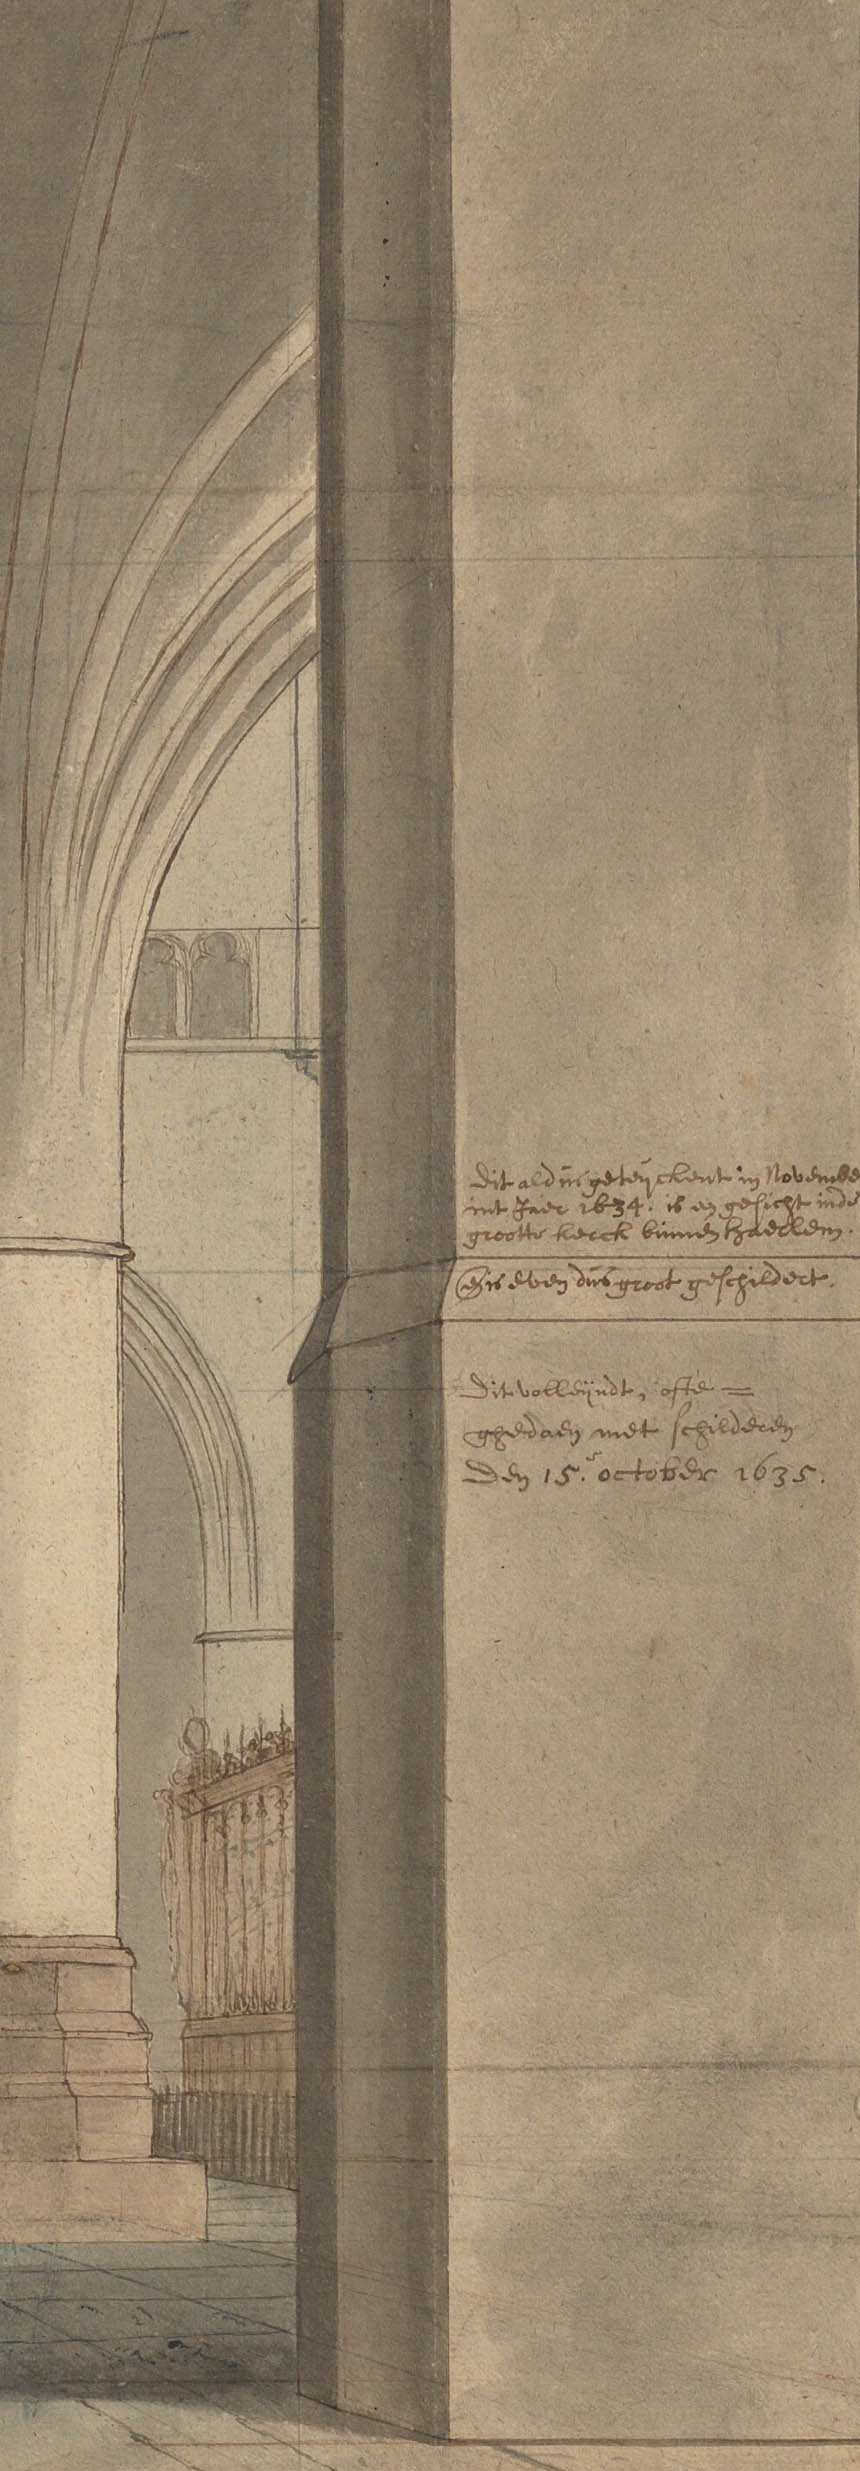 Dit aldus geteyckent in Novembe
int Jaer 1634. is en gesicht inde
grootte kerck binnen Haerlem.
en is even dus groot geschildert.
Dit volleijndt, ofte =
ghedaen met schilderen
Den 15. october 1635.